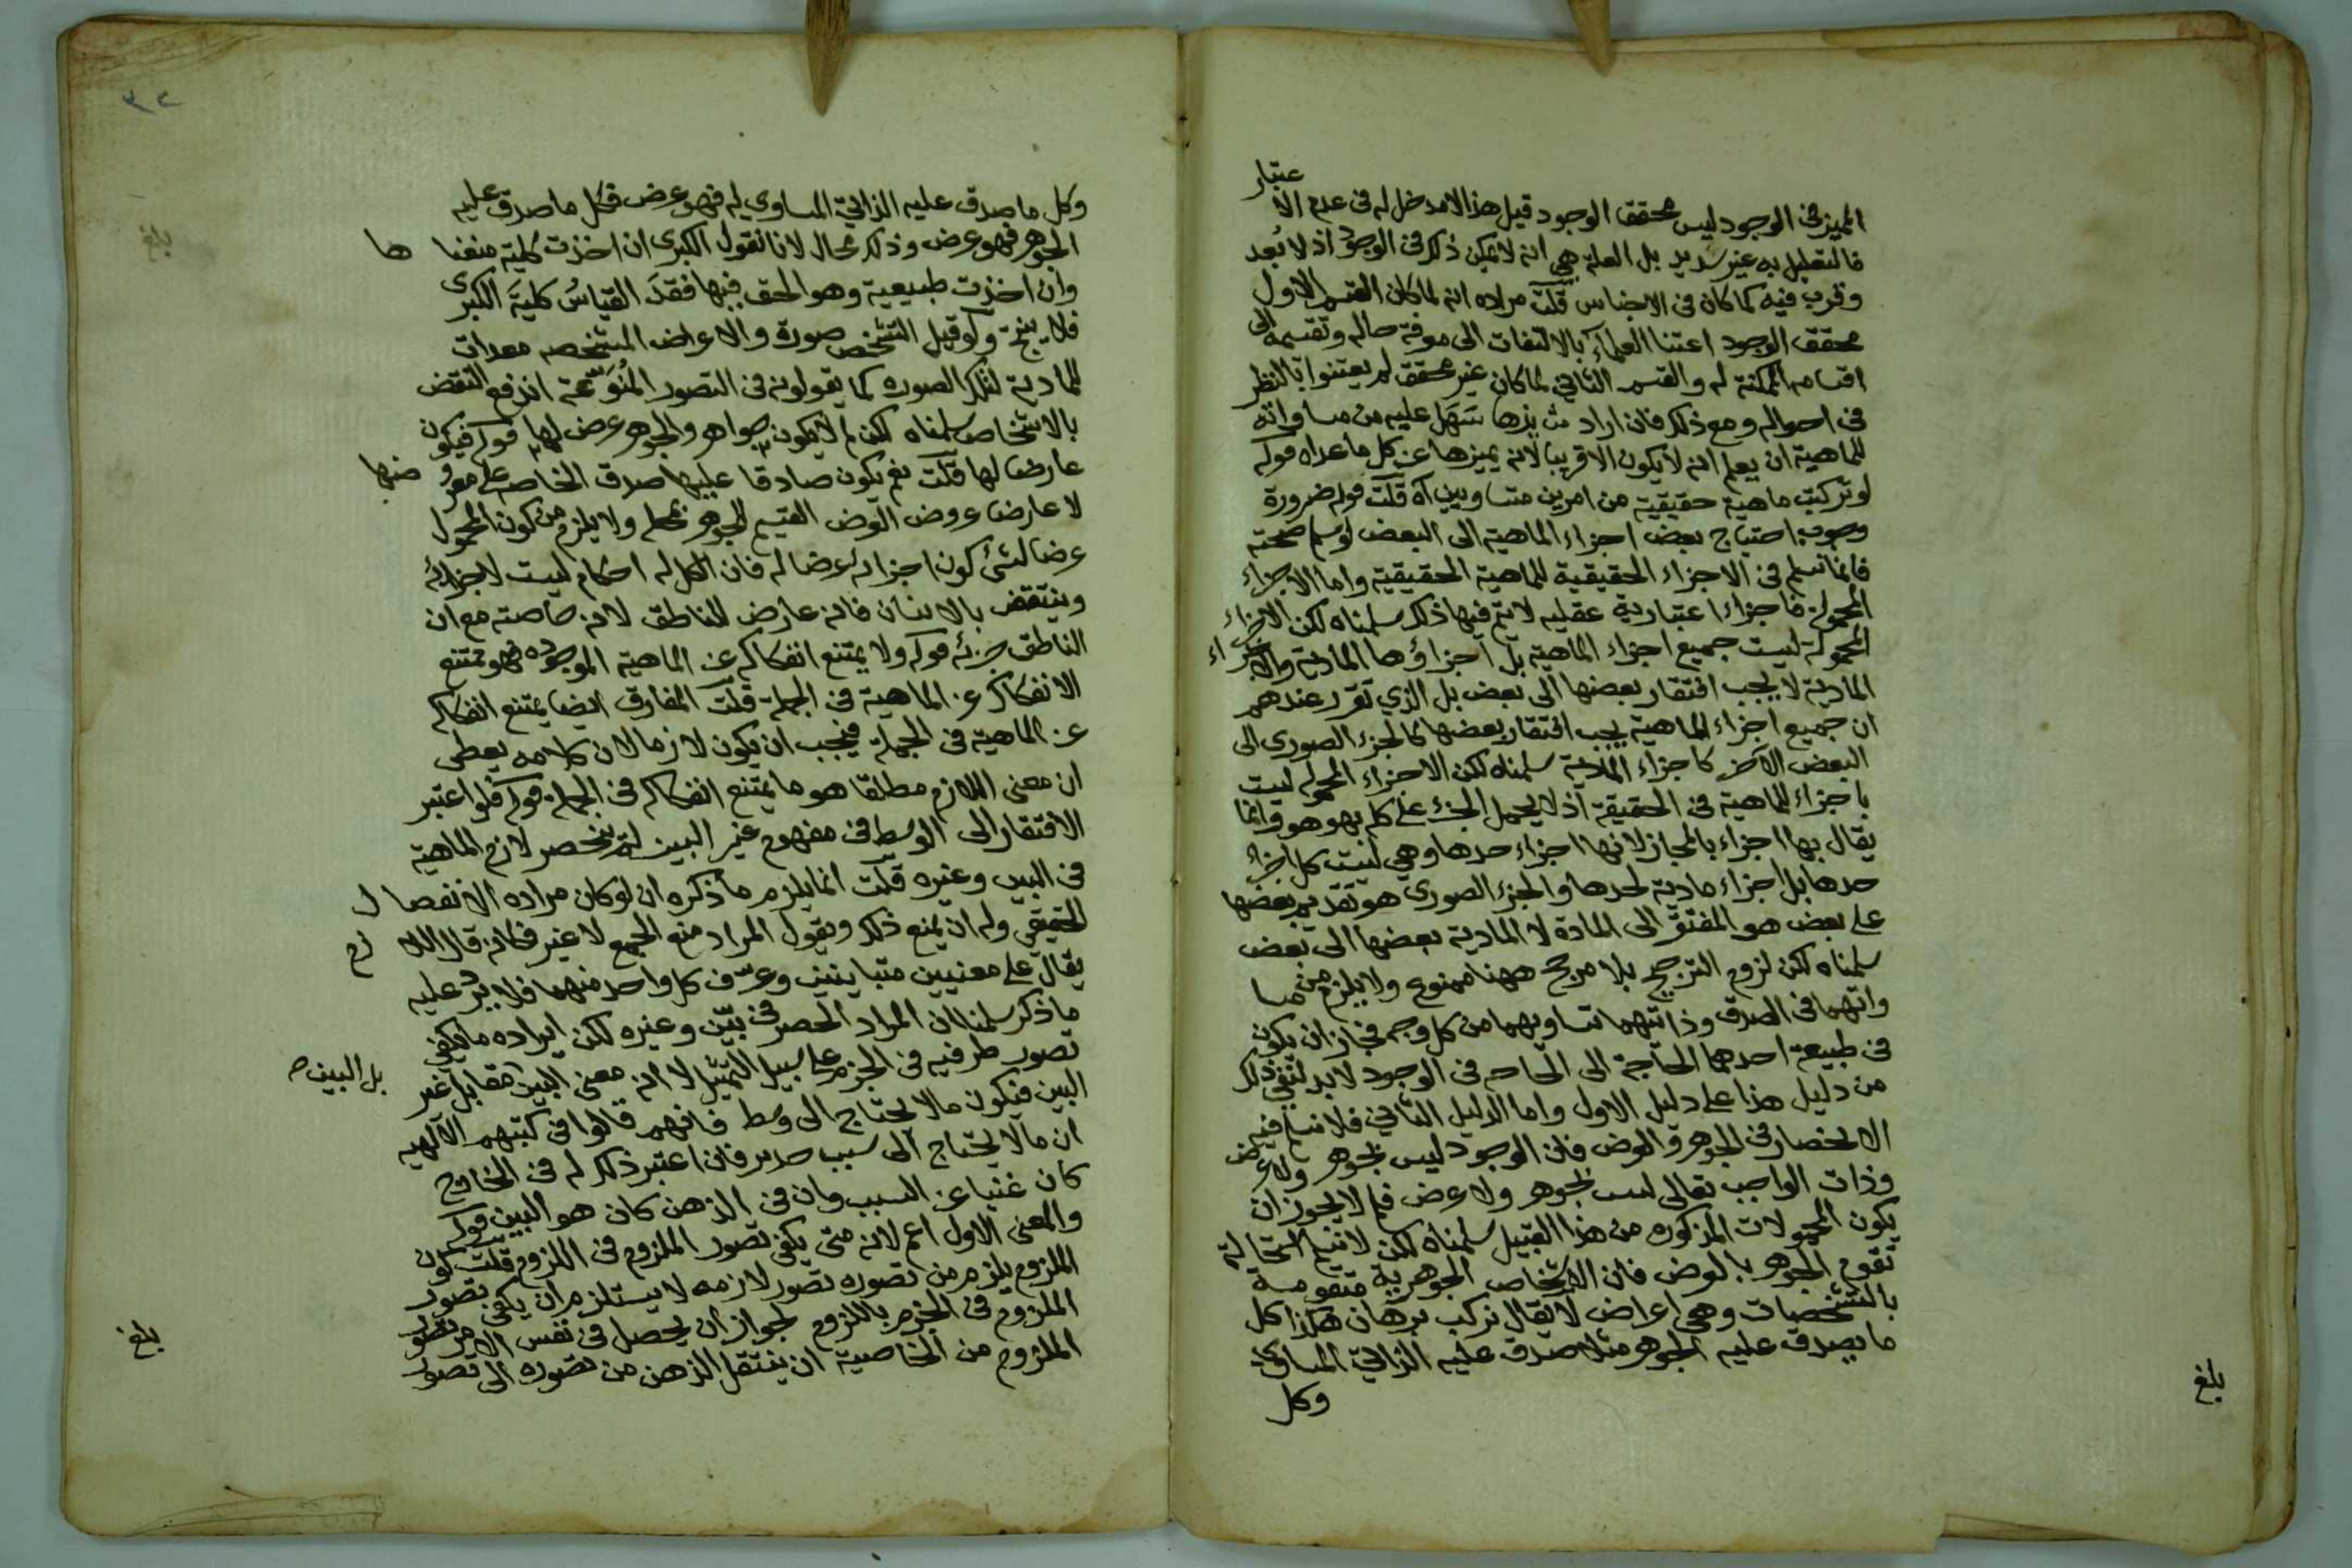 المميز في الوجود ليس محقق الوجود قيل هذا لا مدخل له في عدم الاعتبار
فالتعليل به غير سديد بل العلة هي انه لا يمكن ذلك في الوجود اذ لا بُعد
وقرب فيه كما كان في الاجناس قلت مراده انه لما كان القسم الاول
محقق الوجود اعتنا العلماء بالالتفات الى معرفة حاله وتقسيمه الى
اقسامه الممكنة له والقسم الثاني لما كان غير محقق لم يعتنوا بالنظر
في احواله ومع ذلك فان اراد سَهَل عليه من مساواته
للماهية ان يعلم انه لا يكون الا قريبا لانه يميزها عن كل ما عداه قوله
لو تركبت ماهية حقيقية من امرين متساويين آه قلت قوله ضرورة
وجوب احتياج بعض اجزاء الماهية الى البعض لو سلم صحته
فانما نسلم في الاجزاء الحقيقية للماهية الحقيقية واما الاجزاء
المحمولة فاجزاء اعتبارية عقليه لا تم فيها ذلك سلمناه لكن الاجزاء
المحمولة ليست جميع اجزاء الماهية بل اجزاؤها المادية والاجزاء
المادية لا يجب افتقار بعضها الى بعض بل الذي تقرر عندهم
ان جميع اجزاء الماهية يجب افتقار بعضها كالجزء الصورى الى
البعض الآخر كاجزاء المادية سلمناه لكن الاجزاء المحموله ليست
باجزاء للماهية في الحقيقة اذ لا يحمل الجزء على كله بهو هو وانما
يقال بها اجزاء بالمجاز لانها اجزاء حدها وهي ليست كل اجزاء
حدها بل اجزاء مادية لحدها والجزء الصورى هو تقديم بعضها
على بعض هو المفتقر الى المادة لا المادية بعضها الى بعض
سلمناه لكن لزوم الترجيح بلا مرجح ههنا ممنوع ولا يلزم من مسا
واتهما في الصدق وذاتيهما تساويهما من كل وجه فجاز ان يكون
في طبيعة احدهما الحاجة الى اتحاده في الوجود لا بد لنفي ذلك
من دليل هذا على دليل الاول واما الدليل الثاني فلا نسلم فيه
الانحصار في الجوهر والعرض فان الوجود ليس بجوهر ولا عرض
وذات الواجب تعالى ليس بجوهر ولا عرض فلم لا يجوز ان
يكون المحمولات المذكوره من هذا القبيل سلمناه لكن لا نسلم استحالة
تقوم الجوهر بالعرض فان الاشخاص الجوهرية متقومة
بالتشخصات وهي اعراض لا يقال نركب برهان هكذا كل
ما يصدق عليه الجوهر مثلا صدق عليه الذاتي المساوي
وكل
بلغ
٣٢
وكل ما صدق عليه الذاتي المساوي له فهو عرض فكل ما صدق عليه
الجوهر فهو عرض وذلك محال لانا نقول الكبرى ان اخذت كلية منعناها
وان اخذت طبيعية وهو الحق فيها فقدَ القياسُ كليةَ الكبرى
فلا ينتج ولو قيل التشخص صورة والاعراض المشخصه معدات
للمادية لتلك الصوره كما يقولونه في التصور المُنوّعة اندفع النقض
بالاشخاص سلمناه لكن لم لا يكون جواهر والجوهر عرض لها قوله فيكون
عارضا لها قلت نعم يكون صادقا عليها صدق الخاص على معروضها
لا عارضا عروض العرض القسيم للجوهر لمحله ولا يلزم من كون المحمول
عرضا لشئ كون اجزائه عرضا له فان الكل له احكام ليست لاجزائه
وينتقض بالانسان فانه عارض للناطق لانه خاصته مع ان
الناطق جزئه قوله ولا يمتنع انفكاكه عن الماهية الموجوده فهو يمتنع
الانفكاك عن الماهية في الجملة قلت المفارق ايضا يمتنع انفكاكه
عن الماهية في الجملة فيجب ان يكون لازما لان كلامه يعطى
ان معنى اللازم مطلقا هو ما يمتنع انفكاكه في الجمله قوله فلو اعتبر
الافتقار الى الوسط في مفهوم غير البين لم ينحصر لازم الماهية
في البين وغيره قلت انما يلزم ما ذكره ان لو كان مراده الانفصال
الحقيقي وله ان يمنع ذلك ويقول المراد منع الجمع لا غير فكانه قال اللازم
يقال على معنيين متباينين وعرّف كل واحد منهما فلا يرد عليه
ما ذكر سلمنا ان المراد الحصر في بيّن وغيره لكن ايراده ما يكفي
تصور طرفيه في الجزم على سبيل التمثيل لا انه معنى البين مقابل غير
بل البين ص
البين فيكون ما لا يحتاج الى وسط فانهم قالوا في كتبهم الآلهيه
ان ما لا يحتاج الى سبب فان اعتبر ذلك له في الخارج
كان غنيا عن السبب وان في الذهن كان هو البين قوله
والمعنى الاول اعم لانه متى يكفي تصور الملزوم في اللزوم قلت كون
الملزوم يلزم من تصوره تصور لازمه لا يستلزم ان يكفي تصور
الملزوم في الجزم باللزوم لجواز ان يحصل في نفس الامر تصور
الملزوم من الخاصية ان ينتقل الذهن من تصوره الى تصور
بلغ